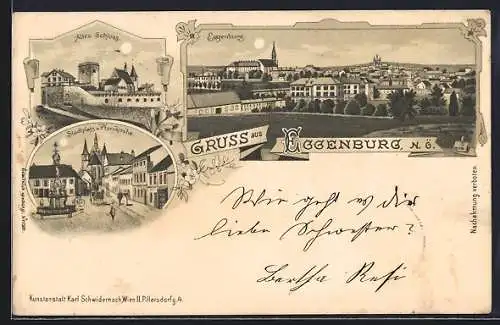 Altes Schloss.
Eggenburg.
Stadtplatz u. Pfarrkirche
GRUSS AUS
EGGENBURG, N. Ö.
Wie geht es dir
liebe Schwester?
Bertha Resi
Nachahmung verboten
Kunstanstalt Karl Schwidernoch, Wien II. Pillersdorfg. 4.